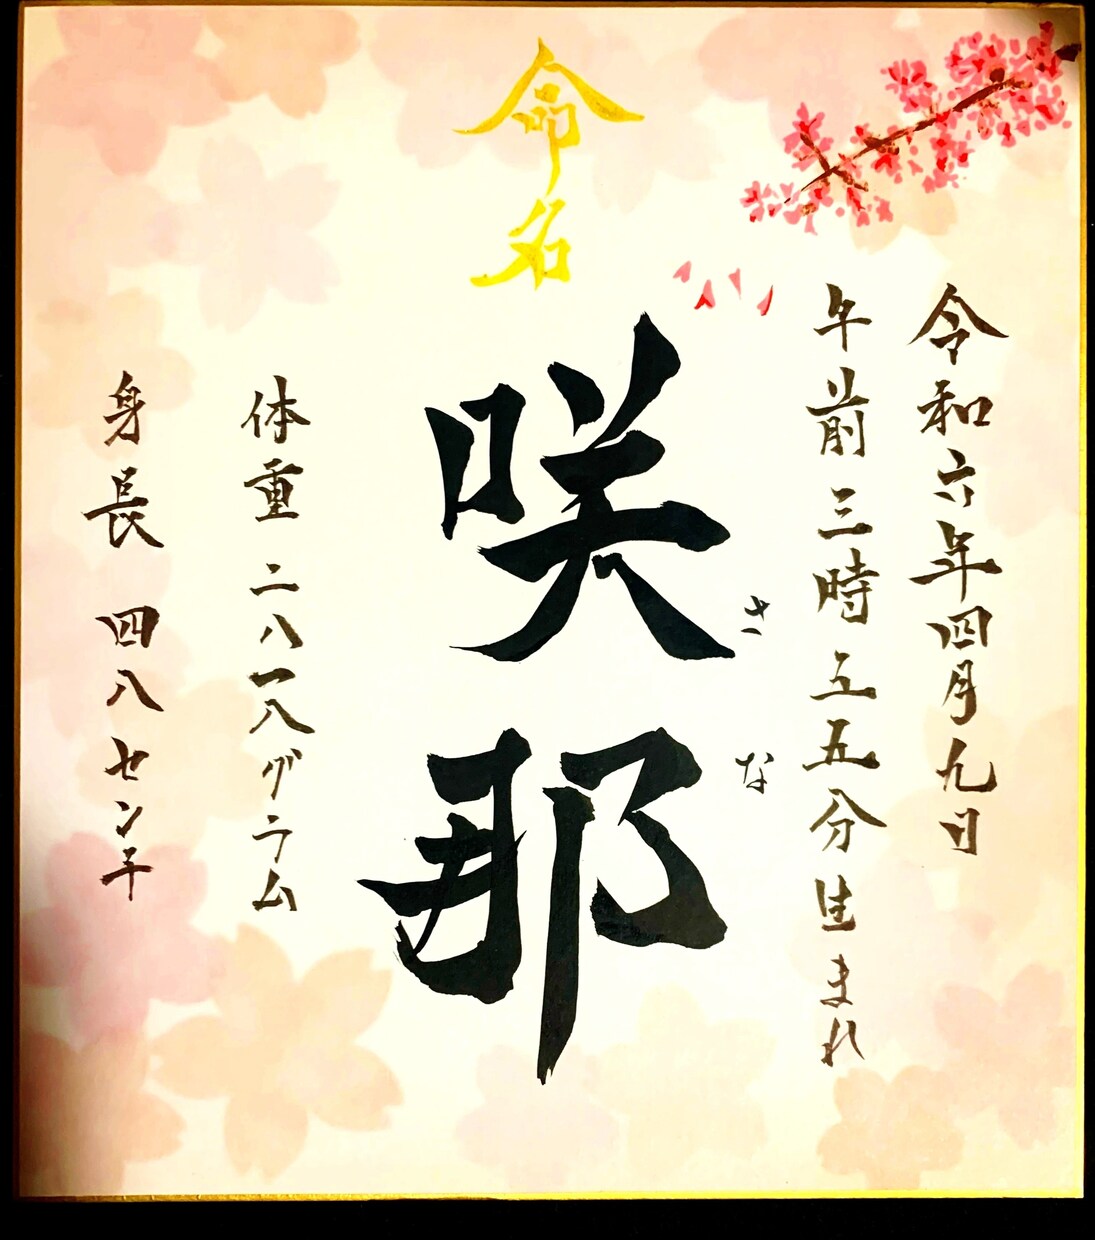 令和六年四月九日
午前三時五五分生まれ
命名
咲那
さな
体重 二八一八グラム
身長 四八センチ